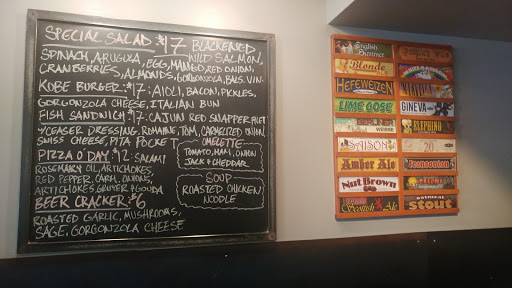 SPECIAL SALAD $17 BLACKENED
WILD SALMON,
SPINACH, ARUGULA, EGG, MANGO, RED ONION,
CRANBERRIES, ALMONDS, GORGONZOLA, BALS. VIN.
KOBE BURGER: $17: AIOLI, BACON, PICKLES,
GORGONZOLA CHEESE, ITALIAN BUN
FISH SANDWICH $17: CAJUN RED SNAPPER FILET
CAESAR DRESSING, ROMAINE, TOM, CARMELIZED ONION
SWISS CHEESE, PITA POCKET
PIZZA O' DAY $12: SALAMI
ROSEMARY OIL, ARTICHOKES,
RED PEPPER, CARM. ONIONS,
ARTICHOKES, GRUYER + GOUDA
BEER CRACKER: $6
ROASTED GARLIC, MUSHROOMS,
SAGE, GORGONZOLA CHEESE
OMELETTE
TOMATO, HAM, ONION
JACK & CHEDDAR
SOUP
ROASTED CHICKEN
NOODLE
English
Summer
Blonde
HEFEWEIZEN
LIME GOSE
BERLINER
WEISSE
SAISON
Amber Ale
Nut Brown
Scottish Ale
GINEVA
ELEPHINO
20
stout